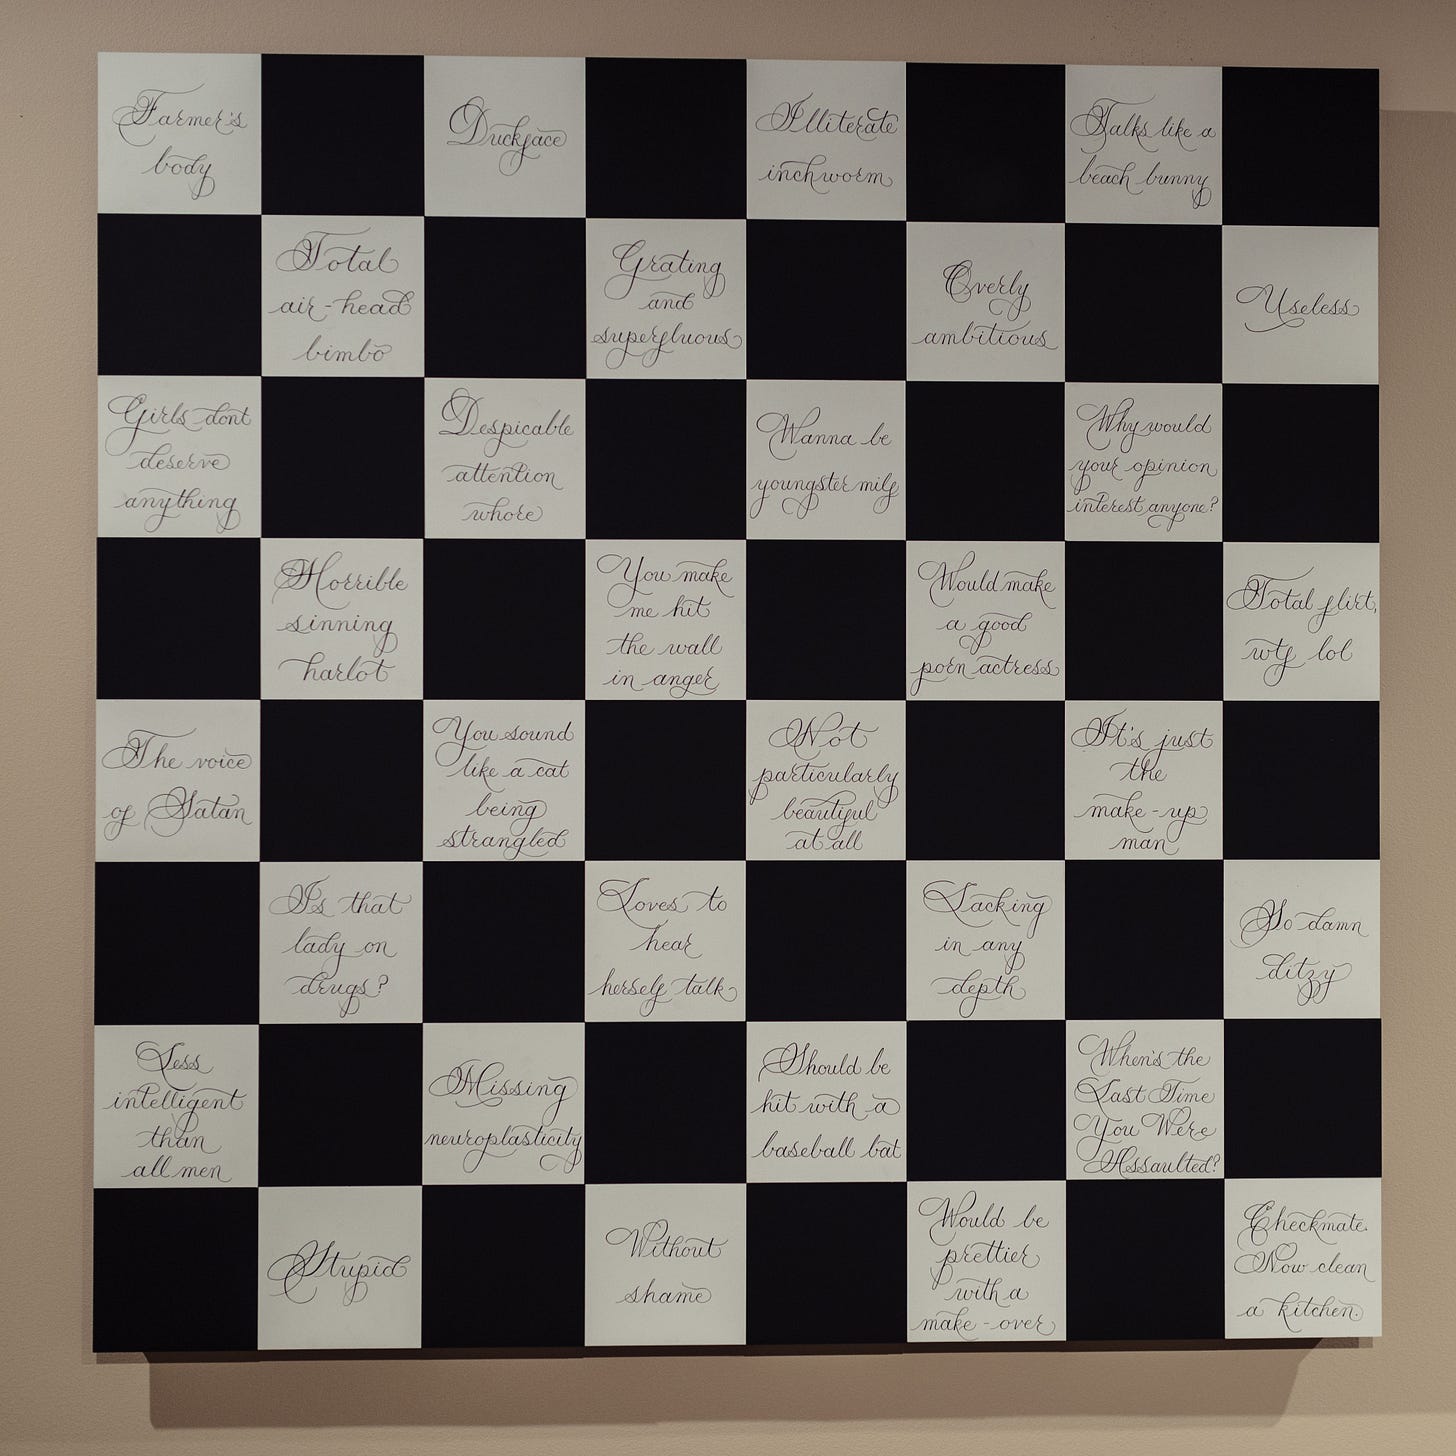 Farmer's
body
Duckface
Illiterate
inchworm
Talks like a
beach bunny
Total
air-head
bimbo
Grating
and
superfluous
Overly
ambitious
Useless
Girls dont
deserve
anything
Despicable
attention
whore
Wanna be
youngster milf
Why would
your opinion
interest anyone?
Horrible
sinning
harlot
You make
me hit
the wall
in anger
Would make
a good
porn actress
Total flirt,
wtf lol
The voice
of Satan
You sound
like a cat
being
strangled
Not
particularly
beautiful
at all
It's just
the
make-up
man
Is that
lady on
drugs?
Loves to
hear
herself talk
Lacking
in any
depth
So damn
ditzy
Less
intelligent
than
all men
Missing
neuroplasticity
Should be
hit with a
baseball bat
When's the
Last Time
You Were
Assaulted?
Stupid
Without
shame
Would be
prettier
with a
make-over
Checkmate.
Now clean
a kitchen.